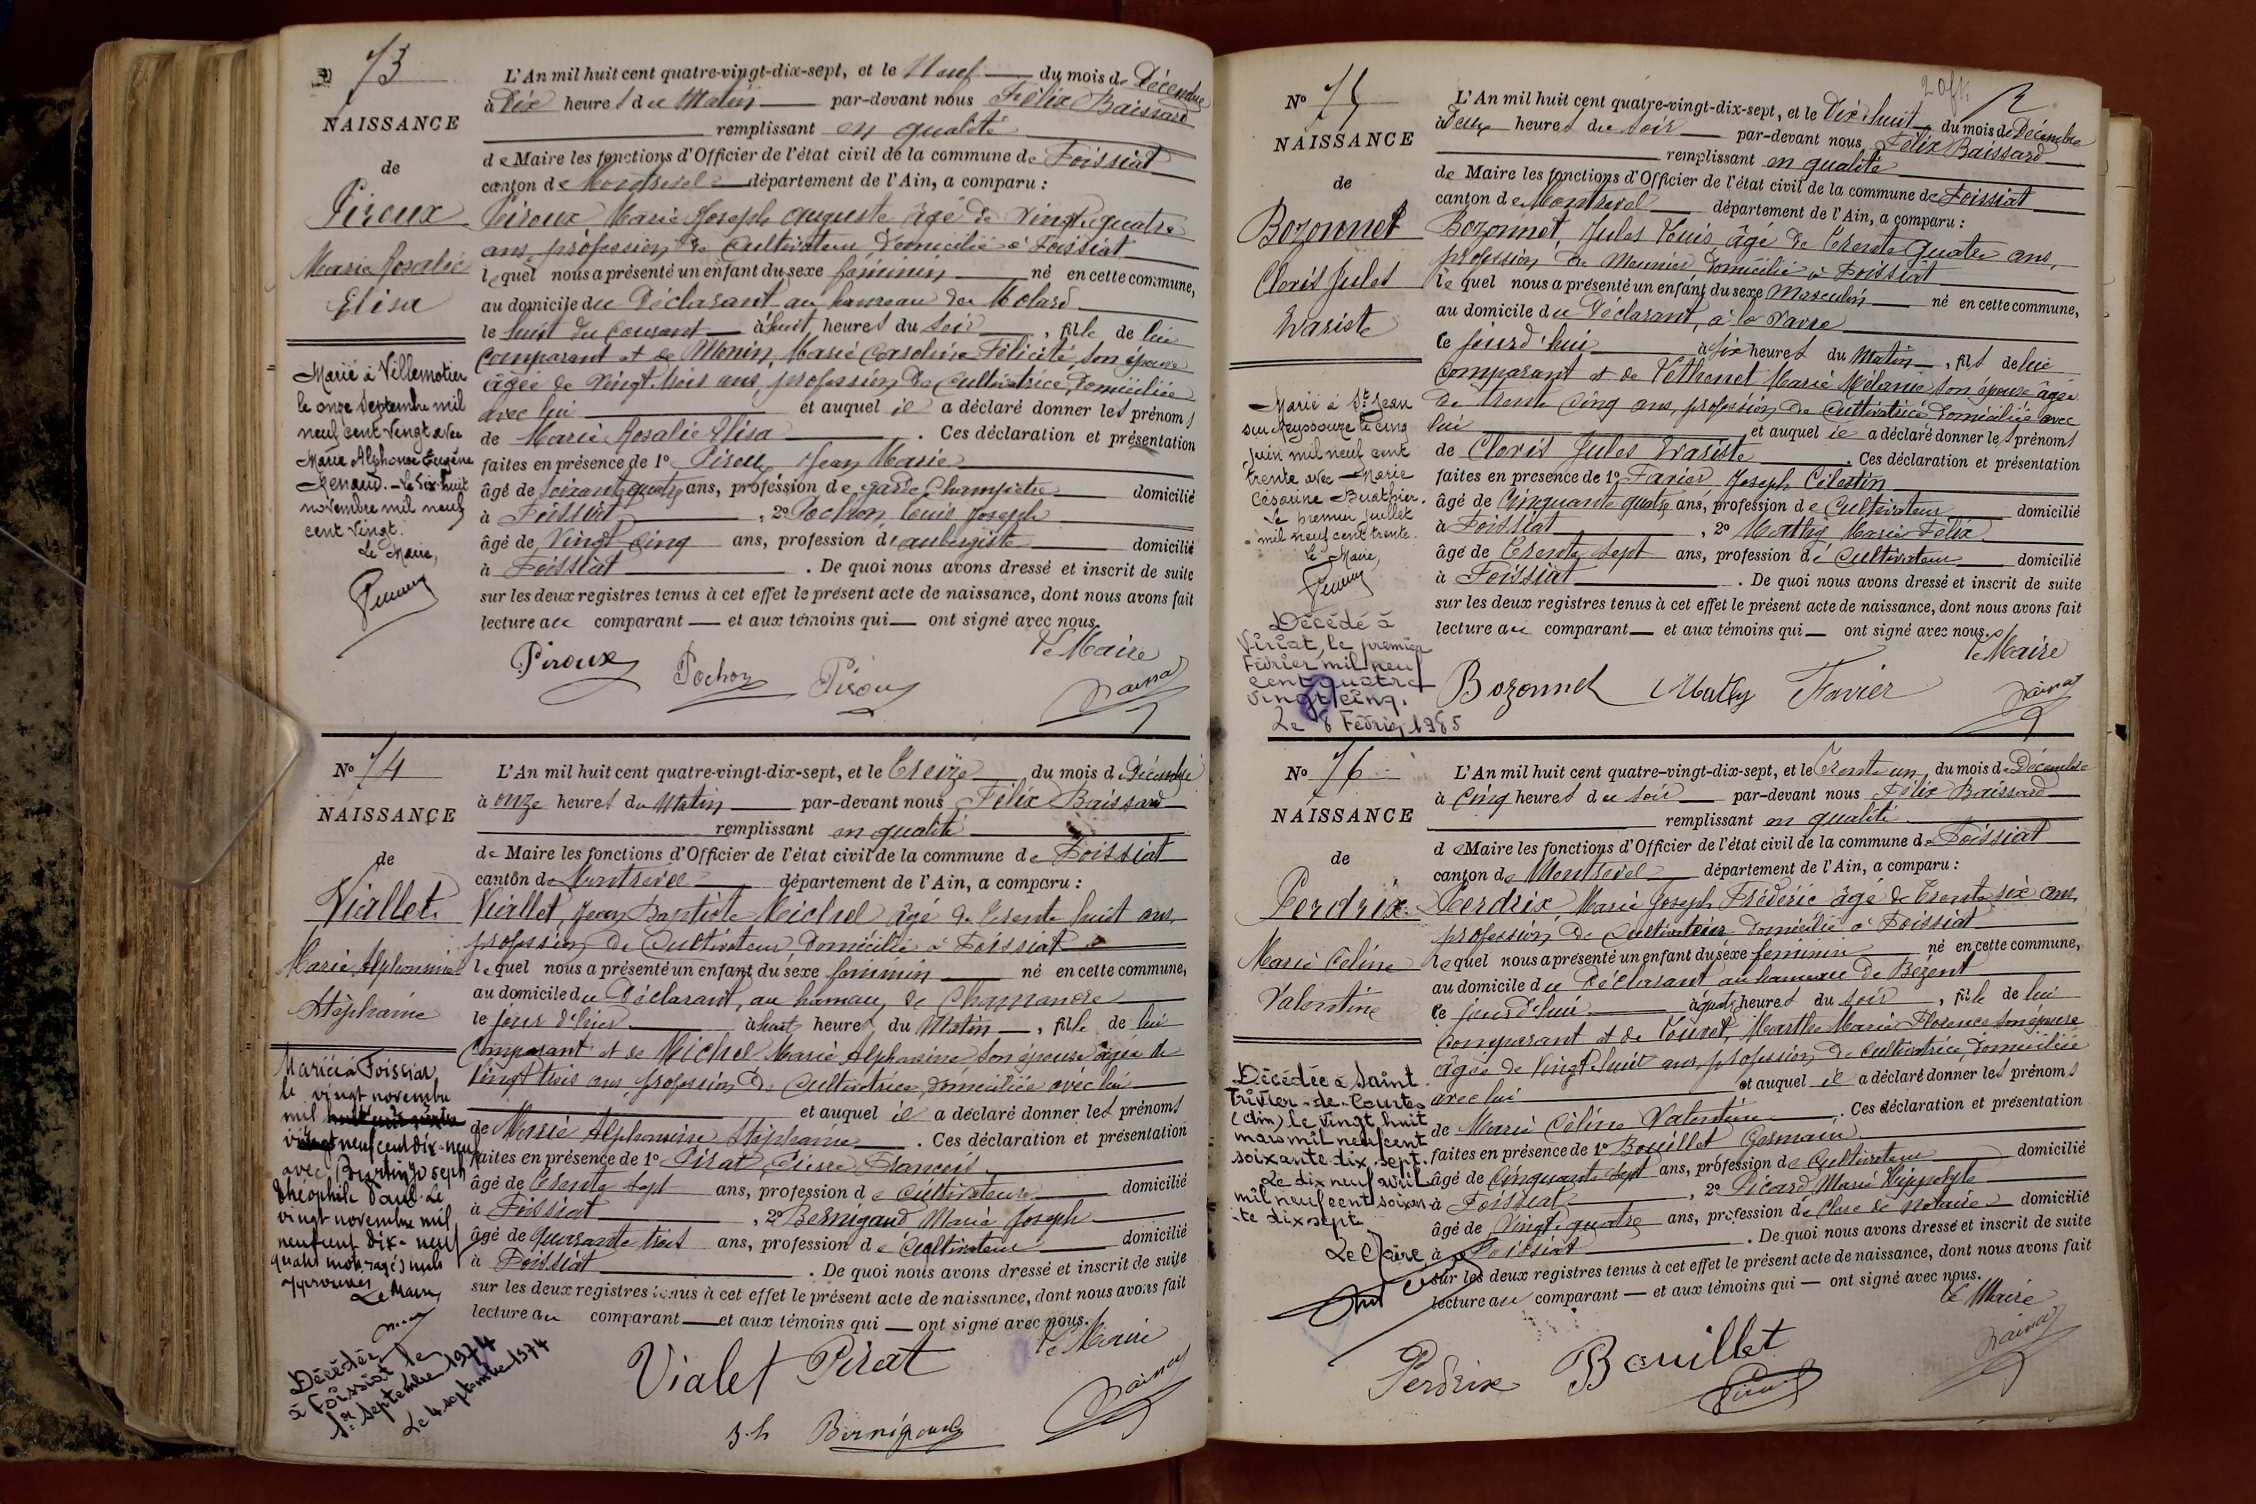 N° 73
NAISSANCE
de
Piroux
Marie Rosalie
Elisa
Marié à Villemotier
le onze Septembre mil
neuf cent vingt avec
Marie Alphonse Eugène
Renaud. - Le dix-huit
novembre mil neuf
cent vingt.
Le Maire,
L'An mil huit cent quatre-vingt-dix-sept, et le Neuf du mois de Décembre
à Dix heures du Matin par-devant nous Félix Baissard
remplissant en qualité
de Maire les fonctions d'Officier de l'état civil de la commune de Foissiat
canton de Montrevel département de l'Ain, a comparu :
Piroux Marie Joseph Auguste âgé de vingt quatre
ans, profession de Cultivateur domicilié à Foissiat
lequel nous a présenté un enfant du sexe féminin né en cette commune,
au domicile du Déclarant au hameau du Molard
le huit du Courant à huit heures du Soir, fille de lui
comparant et de Monin, Marie Caroline Félicité, son épouse
âgée de vingt trois ans, profession de Cultivatrice, domiciliée
avec lui et auquel il a déclaré donner les prénoms
de Marie Rosalie Elisa. Ces déclaration et présentation
faites en présence de 1° Piroux Jean Marie
âgé de soixante quatre ans, profession de garde Champêtre domicilié
à Foissiat, 2° Pochon Louis Joseph
âgé de Vingt Cinq ans, profession d'aubergiste domicilié
à Foissiat. De quoi nous avons dressé et inscrit de suite
sur les deux registres tenus à cet effet le présent acte de naissance, dont nous avons fait
lecture au comparant et aux témoins qui ont signé avec nous.
Le Maire
Piroux Pochon Piroux
N° 74
NAISSANCE
de
Viallet
Marie Alphonsine
Stéphanie
Mariée à Foissiat
le vingt novembre
mil
neuf cent dix-neuf
avec Burtin Joseph
Théophile Paul. Le
vingt novembre mil
neuf cent dix-neuf
quatre mots rayés nuls
approuvés
Le Maire,
Décédée
à Foissiat le
1er septembre 1974
Le 4 septembre 1974
L'An mil huit cent quatre-vingt-dix-sept, et le Treize du mois de Décembre
à onze heures du Matin par-devant nous Félix Baissard
remplissant en qualité
de Maire les fonctions d'Officier de l'état civil de la commune de Foissiat
canton de Montrevel département de l'Ain, a comparu :
Viallet, Jean Baptiste Michel âgé de trente huit ans,
profession de Cultivateur domicilié à Foissiat
lequel nous a présenté un enfant du sexe féminin né en cette commune,
au domicile du Déclarant, au hameau de Chamandre
le jour d'hier à huit heures du Matin, fille de lui
comparant et de Michel Marie Alphonsine son épouse âgée de
vingt trois ans, profession de Cultivatrice, domiciliée avec lui
et auquel il a déclaré donner les prénoms
de Marie Alphonsine Stéphanie. Ces déclaration et présentation
faites en présence de 1° Pirat, Pierre François
âgé de trente sept ans, profession de Cultivateur domicilié
à Foissiat, 2° Bernigaud Marie Joseph
âgé de quarante trois ans, profession de Cultivateur domicilié
à Foissiat. De quoi nous avons dressé et inscrit de suite
sur les deux registres tenus à cet effet le présent acte de naissance, dont nous avons fait
lecture au comparant et aux témoins qui ont signé avec nous.
Le Maire
Vialet Pirat
Bernigaud
N° 75
NAISSANCE
de
Bozonnet
Cloris Jules
Evariste
Marié à St Jean
sur Reyssouze le cinq
juin mil neuf cent
trente avec Marie
Césarine Buathier.
Le premier juillet
mil neuf cent trente.
Le Maire,
Décédé à
Viriat, le premier
Février mil neuf
cent quatre
vingt cinq.
Le 8 Février 1985
L'An mil huit cent quatre-vingt-dix-sept, et le Dix huit du mois de Décembre
à Deux heures du soir par-devant nous Félix Baissard
remplissant en qualité
de Maire les fonctions d'Officier de l'état civil de la commune de Foissiat
canton de Montrevel département de l'Ain, a comparu :
Bozonnet, Jules Louis, âgé de trente quatre ans,
profession de Meunier domicilié à Foissiat
lequel nous a présenté un enfant du sexe Masculin né en cette commune,
au domicile du Déclarant, à la
ce jourd'hui à six heures du Matin, fils de lui
comparant et de Pethonet Marie Mélanie son épouse âgée
de trente cinq ans, profession de Cultivatrice domiciliée avec
lui et auquel il a déclaré donner les prénoms
de Cloris Jules Evariste. Ces déclaration et présentation
faites en présence de 1° Favier Joseph Célestin
âgé de Cinquante quatre ans, profession de Cultivateur domicilié
à Foissiat, 2° Matthy Marie Félix
âgé de trente sept ans, profession de Cultivateur domicilié
à Foissiat. De quoi nous avons dressé et inscrit de suite
sur les deux registres tenus à cet effet le présent acte de naissance, dont nous avons fait
lecture au comparant et aux témoins qui ont signé avec nous.
Le Maire
Bozonnet Mathy Favier
N° 76
NAISSANCE
de
Perdrix
Marie Céline
Valentine
Décédée à Saint
Trivier-de-Courtes
(Ain) le vingt huit
mars mil neuf cent
soixante dix sept.
Le dix neuf avril
mil neuf cent soixan-
te dix sept
Le Maire
L'An mil huit cent quatre-vingt-dix-sept, et le Trente un du mois de Décembre
à Cinq heures du soir par-devant nous Félix Baissard
remplissant en qualité
de Maire les fonctions d'Officier de l'état civil de la commune de Foissiat
canton de Montrevel département de l'Ain, a comparu :
Perdrix Marie Joseph Frédéric âgé de trente six ans
profession de Cultivateur domicilié à Foissiat
lequel nous a présenté un enfant du sexe féminin né en cette commune,
au domicile du Déclarant au hameau de Bezent
ce jourd'hui à quatre heures du soir, fille de lui
comparant et de Louvet, Marthe Marie Florence son épouse
âgée de vingt huit ans, profession de cultivatrice, domiciliée
avec lui et auquel il a déclaré donner les prénoms
de Marie Céline Valentine. Ces déclaration et présentation
faites en présence de 1° Bouillet Germain
âgé de Cinquante sept ans, profession de Cultivateur domicilié
à Foissiat, 2° Picard Marie Hippolyte
âgé de vingt quatre ans, profession de Clerc de notaire domicilié
à Foissiat. De quoi nous avons dressé et inscrit de suite
sur les deux registres tenus à cet effet le présent acte de naissance, dont nous avons fait
lecture au comparant et aux témoins qui ont signé avec nous.
Le Maire
Perdrix Bouillet